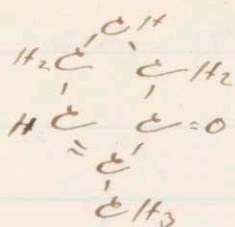 CH
H₂C CH₂
H C C=O
C
CH₃